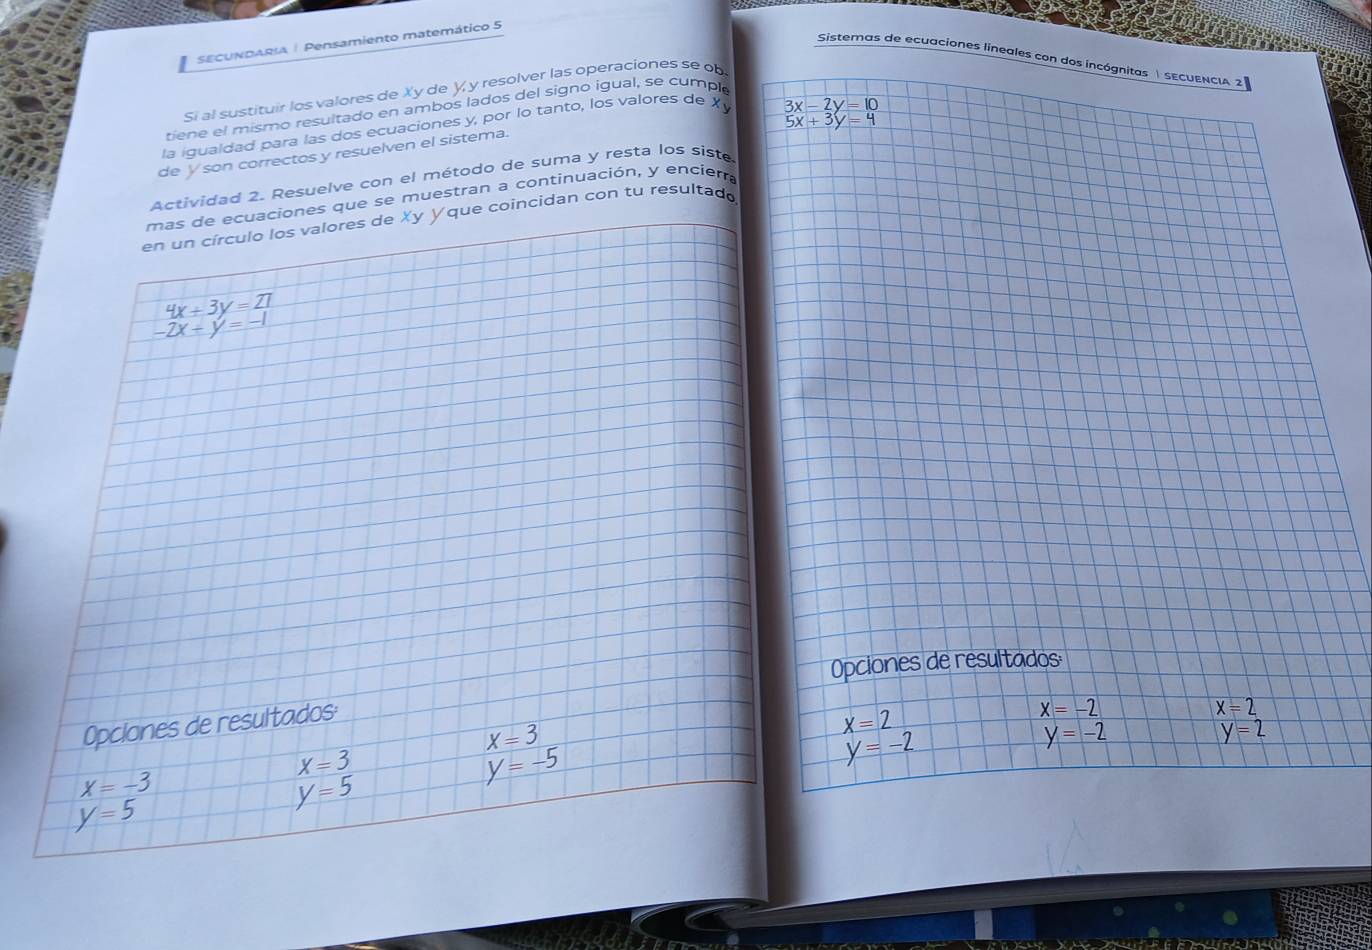 SECUNDARIA | Pensamiento matemático 5
Si al sustituir los valores de x y de y, y resolver las operaciones se ob-
tiene el mismo resultado en ambos lados del signo igual, se cumple
la igualdad para las dos ecuaciones y, por lo tanto, los valores de x y
de y son correctos y resuelven el sistema.
Actividad 2. Resuelve con el método de suma y resta los siste-
mas de ecuaciones que se muestran a continuación, y encierra
en un círculo los valores de x y y que coincidan con tu resultado.
4x + 3y = 27
-2x + y = -1
Opciones de resultados:
x = -3
y = 5
x = 3
y = 5
x = 3
y = -5
Sistemas de ecuaciones lineales con dos incógnitas | SECUENCIA 2
3x - 2y = 10
5x + 3y = 4
Opciones de resultados:
x = 2
y = -2
x = -2
y = -2
x = 2
y = 2